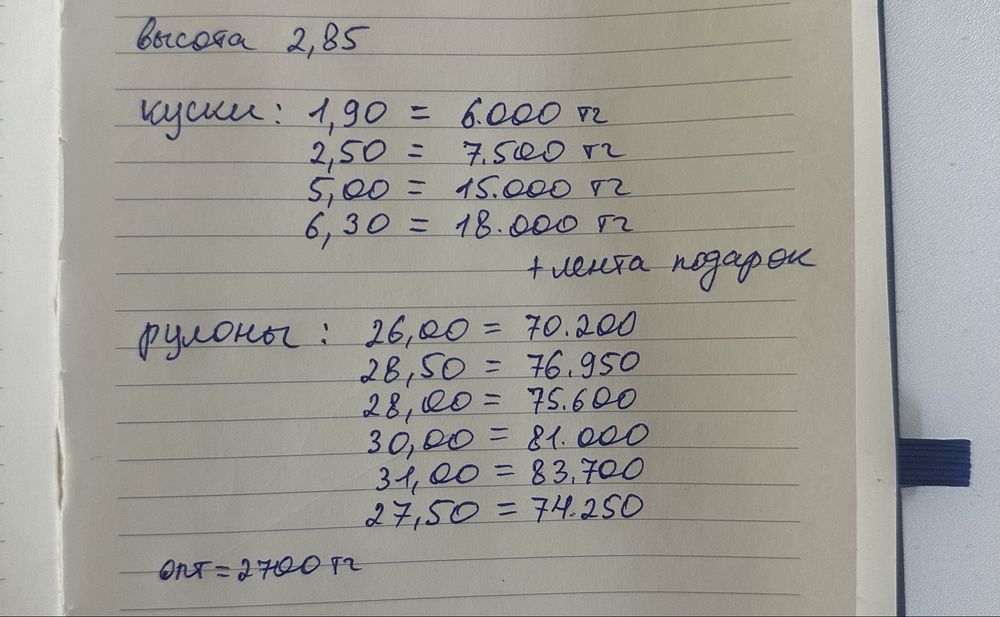 высота 2,85
куски: 1,90 = 6.000 тг
2,50 = 7.500 тг
5,00 = 15.000 тг
6,30 = 18.000 тг
+ лента подарок
рулоны: 26,00 = 70.200
28,50 = 76.950
28,00 = 75.600
30,00 = 81.000
31,00 = 83.700
27,50 = 74.250
опт = 2700 тг